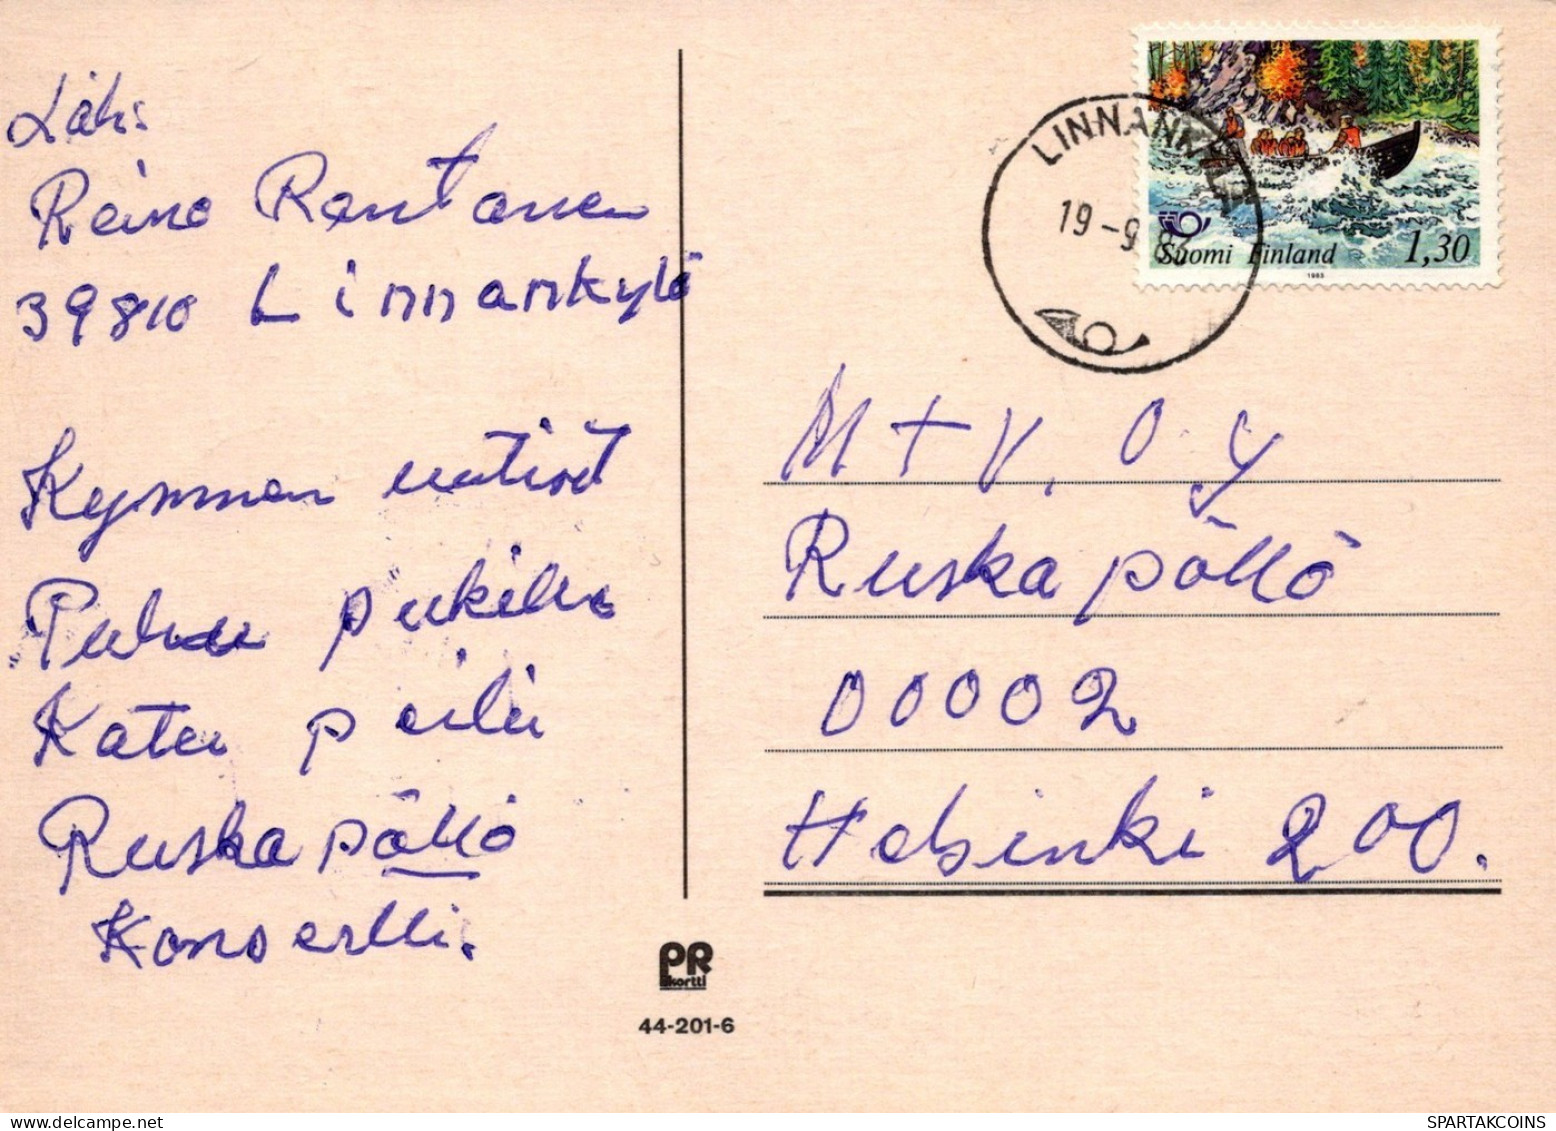 Läh:
Reino Rantanen
39810 Linnankylä
Kymmen uutiset
Puhu pukille
Katu peili
Ruska pöllö
Konsertti.
LINNANKYLÄ
19-9.83
Suomi Finland 1,30
1983
M T V. O Y
Ruska pöllö
00002
Helsinki 200.
PR
kortti
44-201-6
SPARTAKCOINS